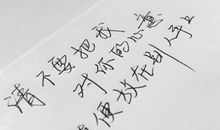 请不要把我
对你的心意
便放在别人身上